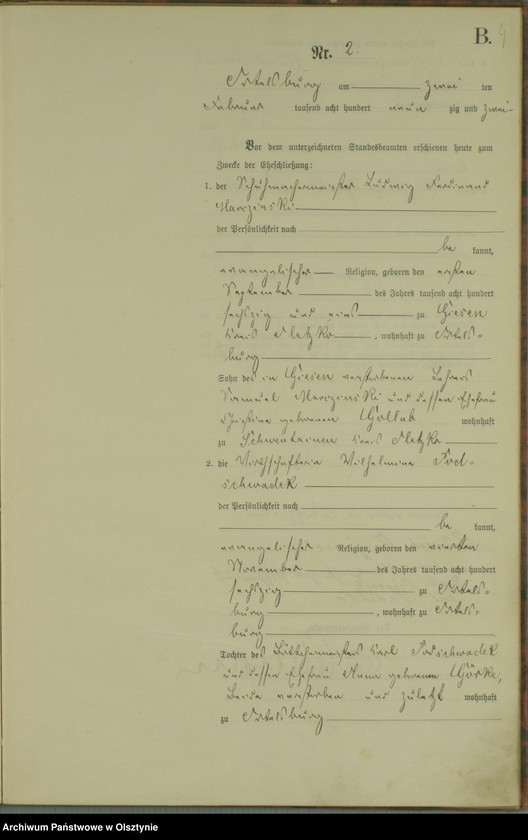 B. 4
Nr. 2.
Ortelsburg am zwei ten
Februar tausend acht hundert neun zig und zwei
Vor dem unterzeichneten Standesbeamten erschienen heute zum
Zwecke der Eheschließung:
1. der Schuhmachermeister Ludwig Ferdinand
der Persönlichkeit nach
be kannt,
evangelischer Religion, geboren den ersten
September des Jahres tausend acht hundert
sechszig und eins zu Giesen
Kreis Oletzko, wohnhaft zu Ortels-
burg
Sohn des in Giesen verstorbenen Lehrers
Samuel und dessen Ehefrau
Christine geborenen Gollub wohnhaft
zu Schwentainen Kreis Oletzko
2. die Wirthschafterin Wilhelmine Pod-
schwadek
der Persönlichkeit nach
be kannt,
evangelischer Religion, geboren den vierten
November des Jahres tausend acht hundert
sechszig zu Ortels-
burg, wohnhaft zu Ortels-
burg
Tochter des Böttchermeisters Karl Podschwadek
und dessen Ehefrau Anna geborenen Görke,
Beide verstorben und zuletzt wohnhaft
zu Ortelsburg
Archiwum Państwowe w Olsztynie